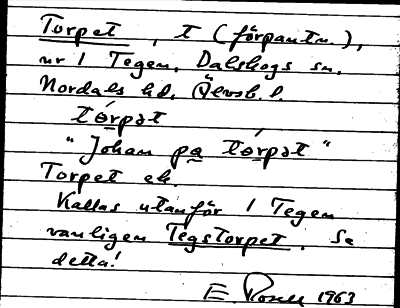 Torpet, t (förpantn.),
nr 1 Tegen, Dalskogs sn,
Nordals hd, Älvsb. l.
tórpət
"Johan pa tórpət"
Torpet ek.
Kallas utanför 1 Tegen
vanligen Tegstorpet. Se
detta!
E. 1963